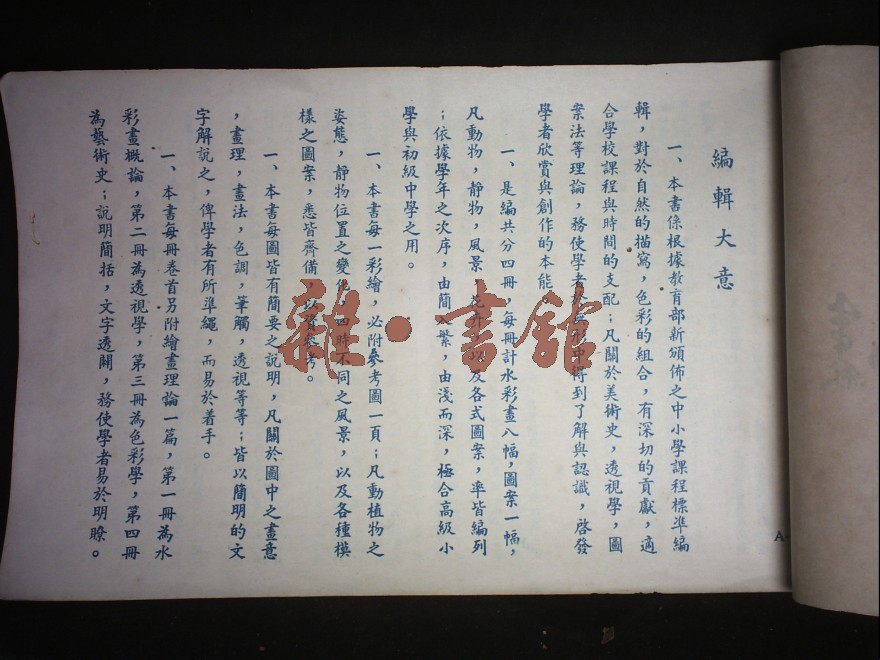 編輯大意
一、本書係根據教育部新頒佈之中小學課程標準編
輯，對於自然的描寫，色彩的組合，有深切的貢獻，適
合學校課程與時間的支配；凡關於美術史，透視學，圖
案法等理論，務使學者於無形中得到了解與認識，啓發
學者欣賞與創作的本能。
一、是編共分四冊，每冊計水彩畫八幅，圖案一幅，
凡動物，靜物，風景以及各式圖案，率皆編列
；依據學年之次序，由簡入繁，由淺而深，極合高級小
學與初級中學之用。
一、本書每一彩繪，必附參考圖一頁；凡動植物之
姿態，靜物位置之變化，四時不同之風景，以及各種模
樣之圖案，悉皆齊備，以資參考。
一、本書每圖皆有簡要之說明，凡關於圖中之畫意
，畫理，畫法，色調，筆觸，透視等等；皆以簡明的文
字解說之，俾學者有所準繩，而易於着手。
一、本書每冊卷首另附繪畫理論一篇，第一冊為水
彩畫概論，第二冊為透視學，第三冊為色彩學，第四冊
為藝術史；說明簡括，文字透闢，務使學者易於明瞭。
雜·書館
A-